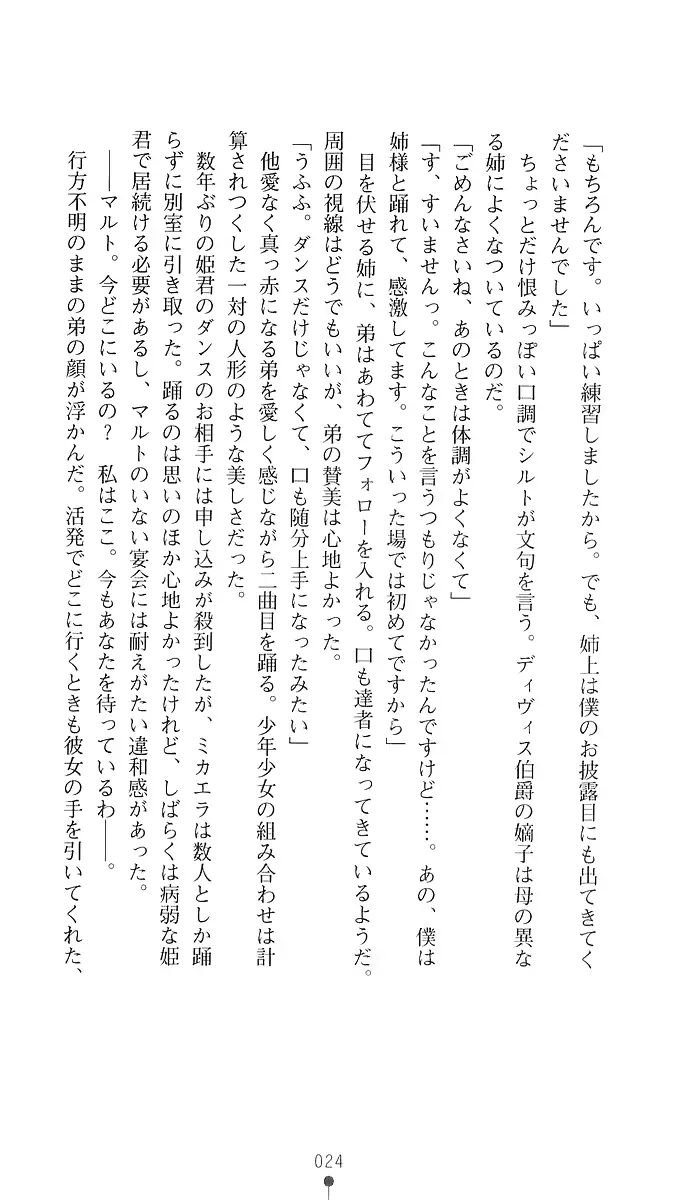 「もちろんです。いっぱい練習しましたから。でも、姉上は僕のお披露目にも出てきてく
ださいませんでした」
　ちょっとだけ恨みっぽい口調でシルトが文句を言う。ディヴィス伯爵の嫡子は母の異な
る姉によくなついているのだ。
「ごめんなさいね、あのときは体調がよくなくて」
「す、すいませんっ。こんなことを言うつもりじゃなかったんですけど……。あの、僕は
姉様と踊れて、感激してます。こういった場では初めてですから」
　目を伏せる姉に、弟はあわててフォローを入れる。口も達者になってきているようだ。
周囲の視線はどうでもいいが、弟の賛美は心地よかった。
「うふふ。ダンスだけじゃなくて、口も随分上手になったみたい」
　他愛なく真っ赤になる弟を愛しく感じながら二曲目を踊る。少年少女の組み合わせは計
算されつくした一対の人形のような美しさだった。
　数年ぶりの姫君のダンスのお相手には申し込みが殺到したが、ミカエラは数人としか踊
らずに別室に引き取った。踊るのは思いのほか心地よかったけれど、しばらくは病弱な姫
君で居続ける必要があるし、マルトのいない宴会には耐えがたい違和感があった。
　――マルト。今どこにいるの？　私はここ。今もあなたを待っているわ――。
　行方不明のままの弟の顔が浮かんだ。活発でどこに行くときも彼女の手を引いてくれた、
024